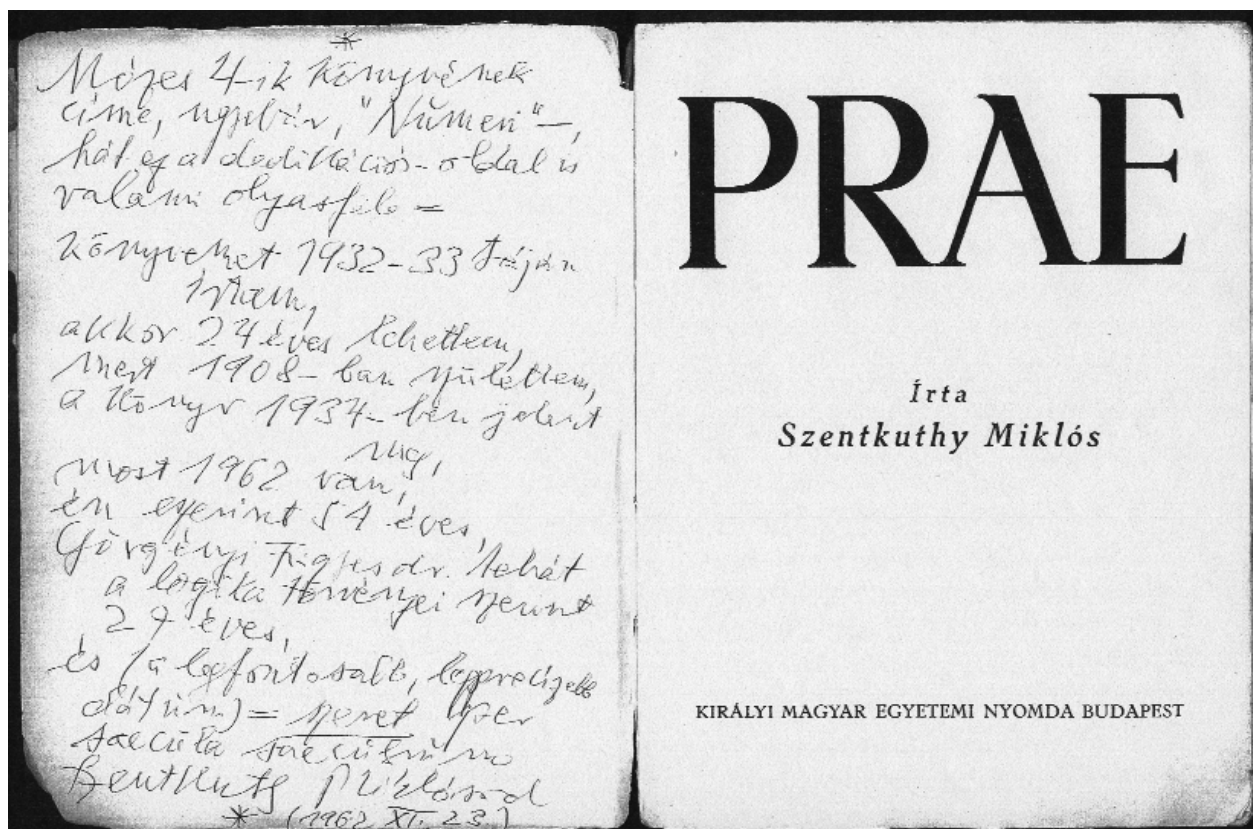 *
Mózes 4-ik könyvének
címe, ugyebár, "Numeri"–,
hát ez a dedikációs-oldal is
valami olyasféle =
könyvemet 1932–33 táján
írtam,
akkor 24 éves lehettem,
mert 1908–ban születtem,
a könyv 1934–ben jelent
meg,
most 1962 van,
én eszerint 54 éves,
Görgényi Frigyes dr. tehát
a logika törvényei szerint
27 éves,
és (a legfontosabb, legprecízebb
dátum) = szeret per
saecula saeculorum
Szentkuthy Miklósod
* (1962 XI. 23.)
PRAE
Írta
Szentkuthy Miklós
KIRÁLYI MAGYAR EGYETEMI NYOMDA BUDAPEST